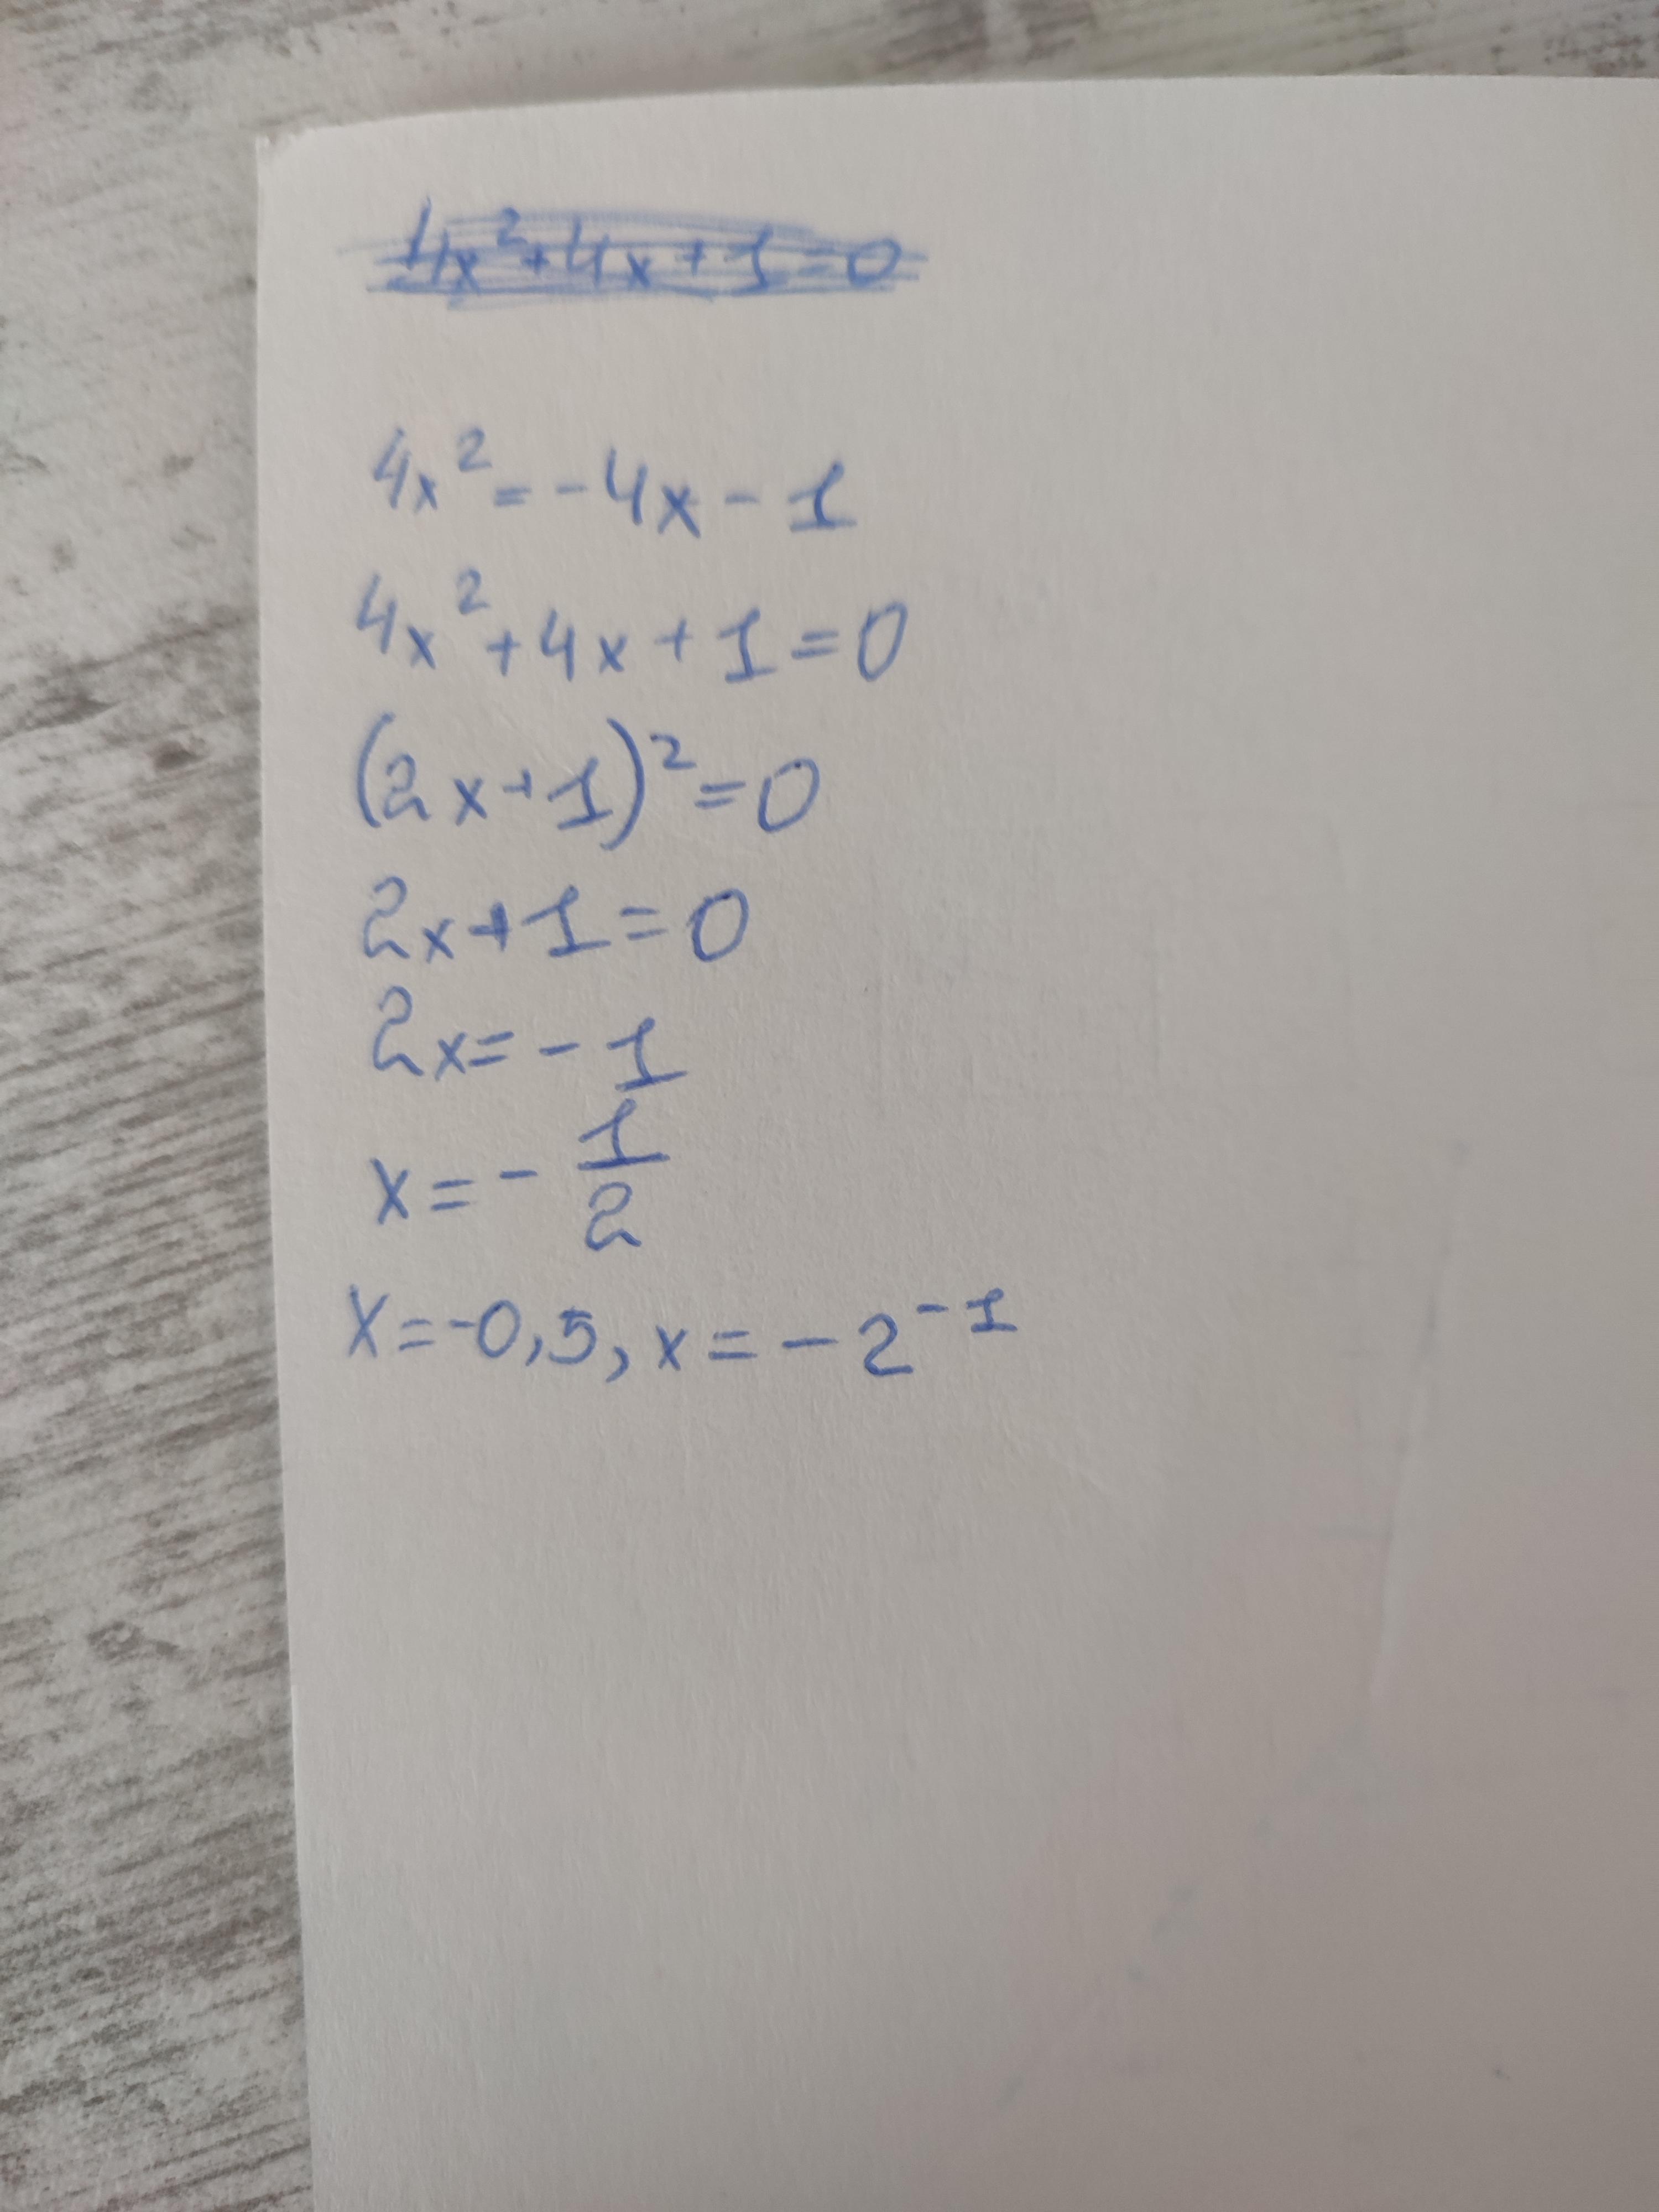 4x²+4x+1=0
4x²=-4x-1
4x²+4x+1=0
(2x+1)²=0
2x+1=0
2x=-1
x=-1/2
x=-0,5, x=-2⁻¹